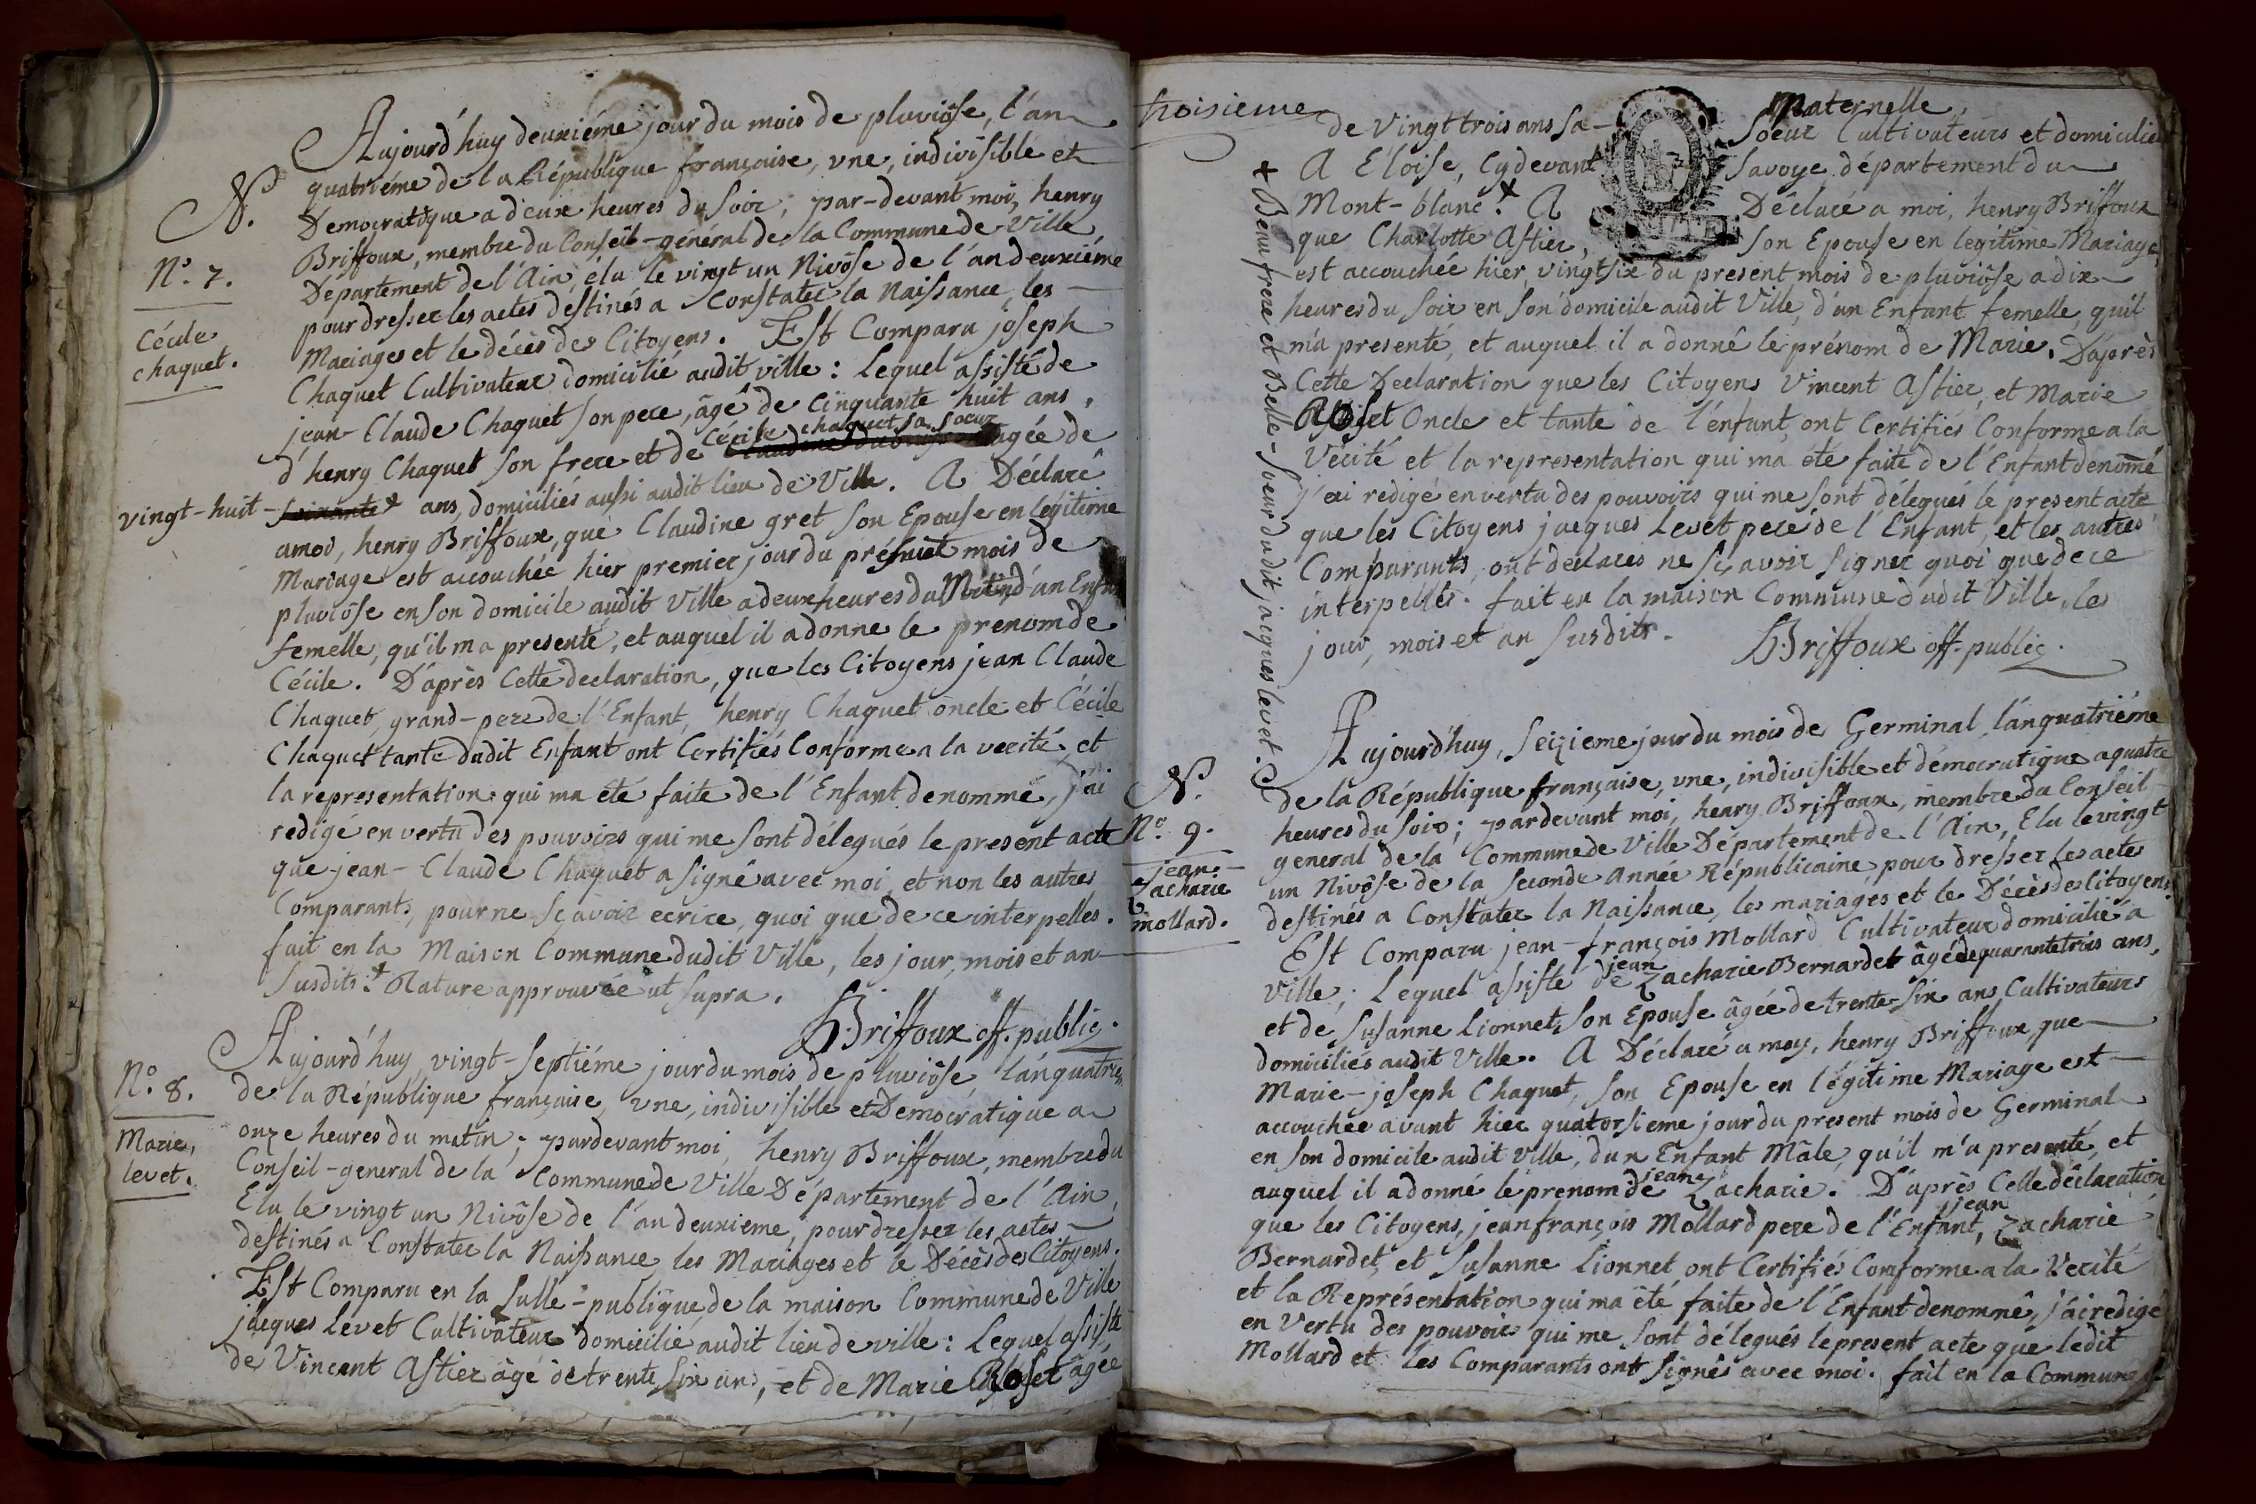 Aujourd'huy deuxiéme jour du mois de pluviôse, l'an
quatriéme de la République française, une, indivisible et
Democratique a deux heures du soir; par-devant moi, henry
Briffoux, membre du Conseil-général de la Commune de Ville
Département de l'Ain, élu le vingt un Nivôse de l'an deuxiéme
pour dresser les actes destinés a Constater la Naissance, les
Mariages et le décès des Citoyens. Est Comparu joseph
Chaquet Cultivateur domicilié audit ville: Lequel assisté de
jean-Claude Chaquet son pere, âgé de cinquante huit ans,
d'henry Chaquet son frere et de Cécile chaquet sa soeur agée de
vingt-huit - soixante + ans, domiciliés aussi audit lieu de Ville. A Déclaré
amoi, henry Briffoux, que Claudine gret son Epouse en legitime
Mariage est accouchée hier premier jour du présent mois de
pluviôse en son domicile audit Ville a deux heures du Matin, d'un Enfant
femelle, qu'il ma presenté, et auquel il a donné le prenom de
Cécile. D'après Cette declaration, que les Citoyens jean Claude
Chaquet, grand-pere de l'Enfant, henry Chaquet oncle et Cécile
Chaquet tante dudit Enfant ont Certifiés Conforme a la verité, et
la representation qui ma été faite de l'Enfant denommé, j'ai
redigé en vertu des pouvoirs qui me sont délegués le present acte
que jean-Claude Chaquet a signé avec moi, et non les autres
Comparants, pour ne sçavoir ecrire, quoi que de ce interpelles.
fait en la Maison Commune dudit Ville, les jour, mois et an
susdits. + Rature approuvée ut supra.
H. Briffoux off. public.
N.
N.º 7.
Cécile
chaquet.
Aujourd'huy vingt-septiéme jour du mois de pluviôse l'an quatrié
de la République française, une, indivisible et Democratique a
onze heures du matin; pardevant moi, henry Briffoux, membre du
Conseil-general de la Commune de Ville Département de l'Ain,
Elu le vingt un Nivôse de l'an deuxieme, pour dresser les actes
destinés a Constater la Naissance les Mariages et le Décès des Citoyens.
Est Comparu en la Salle-publique de la maison Commune de Ville
jâcques Levet Cultivateur domicilié audit lieu de ville: Lequel assisté
de Vincent Astier âgé de trente six ans, et de Marie Roset âgée
N.º 8.
Marie,
levet.
troisieme
de Vingt trois ans sa Soeur Maternelle, Cultivateurs et domiciliés
A Eloise, Cydevant Savoye, département du
Mont-blanc. + A Déclaré a moi, henry Briffoux
que Charlotte Astier, son Epouse en legitime Mariage,
est accouchée hier, vingt six du present mois de pluviôse a dix
heures du soir en son domicile audit Ville, d'un Enfant femelle, quil
m'a presenté, et auquel il a donné le prénom de Marie. D'après
Cette Declaration que les Citoyens Vincent Astier, et Marie
Roset Oncle et tante de l'enfant, ont Certifiés Conforme a la
Verité et la representation qui ma été faite de l'Enfant denommé
j'ai redigé en vertu des pouvoirs qui me sont délegués le present acte
que les Citoyens jacques Levet pere de l'Enfant, et les autres
Comparants, ont declarés ne sçavoir signer quoi que de ce
interpellés. fait en la maison Commune dudit Ville, les
jour, mois et an susdits.
H. Briffoux off. public.
+ Beau frere et Belle-soeur dudit jacques levet.
Aujourd'huy, seizieme jour du mois de Germinal, l'an quatriéme
de la République française, une, indivisible et démocratique a quatre
heures du soir; pardevant moi, henry Briffoux, membre du Conseil
general de la Commune de Ville Département de l'Ain, Elu le vingt
un Nivôse de la seconde année Républicaine pour dresser les actes
destinés a Constater la Naissance, les mariages et le Décès des Citoyens
Est Comparu jean-françois Mollard Cultivateur domicilié a
Ville; Lequel assisté de jean Zacharie Bernardet âgé de quarante trois ans,
et de Susanne Lionnet, son Epouse âgée de trente-six ans Cultivateurs
domiciliés audit Ville. A Déclaré a moy, henry Briffoux, que
Marie-joseph Chaquet, son Epouse en légitime Mariage est
accouchée avant hier quatorsieme jour du present mois de Germinal
en son domicile audit Ville, dun Enfant Mâle, qu'il m'a presenté, et
auquel il a donné le prenom de jean Zacharie. D'après Celle déclaration
que les Citoyens, jean françois Mollard pere de l'Enfant, jean Zacharie
Bernardet, et Susanne Lionnet ont Certifiés Conforme a la Verité
et la Représentation qui ma été faite de l'Enfant denommé, j'ai redigé
en Vertu des pouvoirs qui me sont délegués le present acte que ledit
Mollard et les Comparants ont signés avec moi. fait en la Commune
N.
N.º 9.
jean-
Zacharie
mollard.